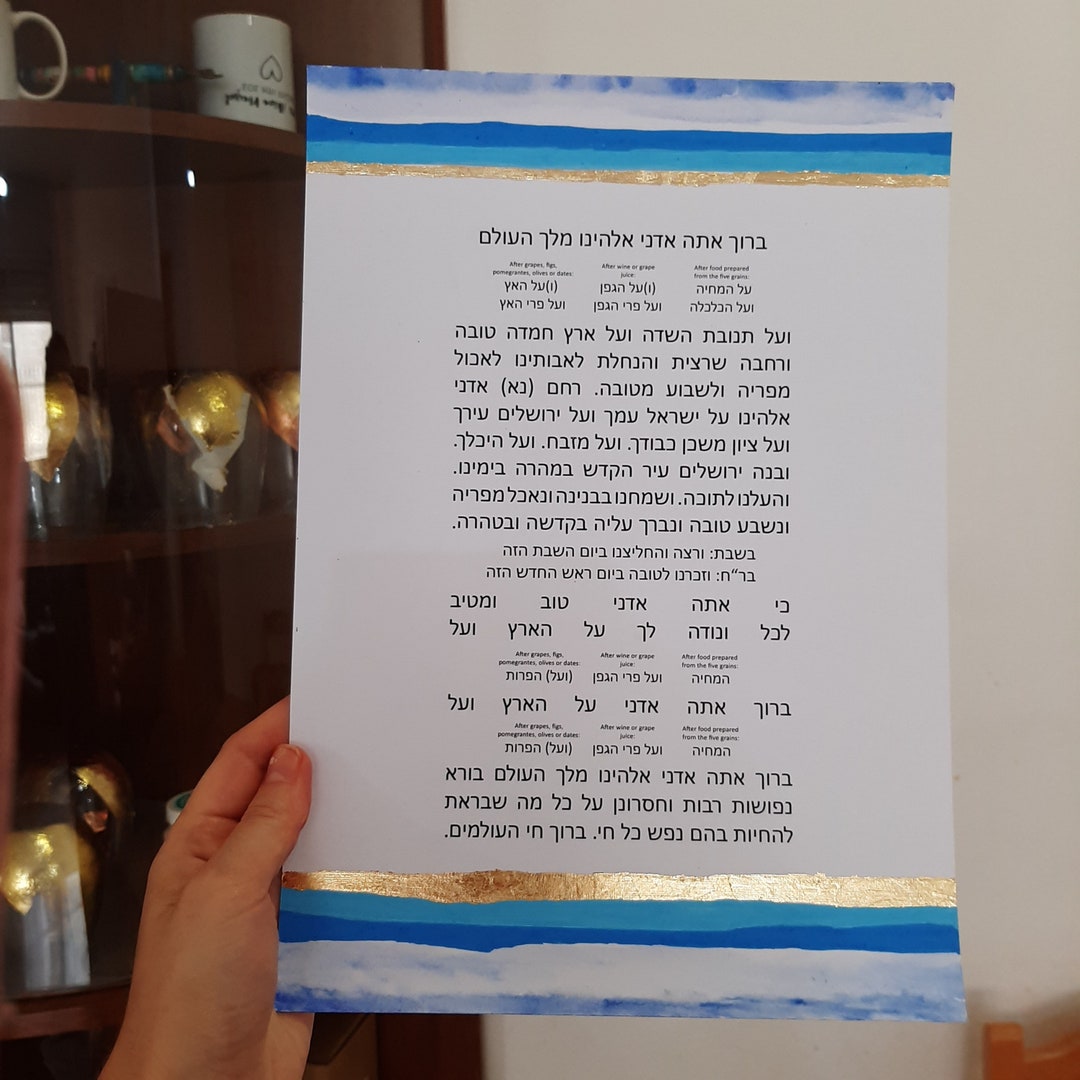 ברוך אתה אדני אלהינו מלך העולם
After food prepared
from the five grains:
על המחיה
ועל הכלכלה
After wine or grape
juice:
(ו)על הגפן
ועל פרי הגפן
After grapes, figs,
pomegrantes, olives or dates:
(ו)על האץ
ועל פרי האץ
ועל תנובת השדה ועל ארץ חמדה טובה
ורחבה שרצית והנחלת לאבותינו לאכול
מפריה ולשבוע מטובה. רחם (נא) אדני
אלהינו על ישראל עמך ועל ירושלים עירך
ועל ציון משכן כבודך. ועל מזבח. ועל היכלך.
ובנה ירושלים עיר הקדש במהרה בימינו.
והעלנו לתוכה. ושמחנו בבנינה ונאכל מפריה
ונשבע טובה ונברך עליה בקדשה ובטהרה.
בשבת: ורצה והחליצנו ביום השבת הזה
בר"ח: וזכרנו לטובה ביום ראש החדש הזה
כי אתה אדני טוב ומטיב
לכל ונודה לך על הארץ ועל
After food prepared
from the five grains:
המחיה
After wine or grape
juice:
ועל פרי הגפן
After grapes, figs,
pomegrantes, olives or dates:
(ועל) הפרות
ברוך אתה אדני על הארץ ועל
After food prepared
from the five grains:
המחיה
After wine or grape
juice:
ועל פרי הגפן
After grapes, figs,
pomegrantes, olives or dates:
(ועל) הפרות
ברוך אתה אדני אלהינו מלך העולם בורא
נפושות רבות וחסרונן על כל מה שבראת
להחיות בהם נפש כל חי. ברוך חי העולמים.